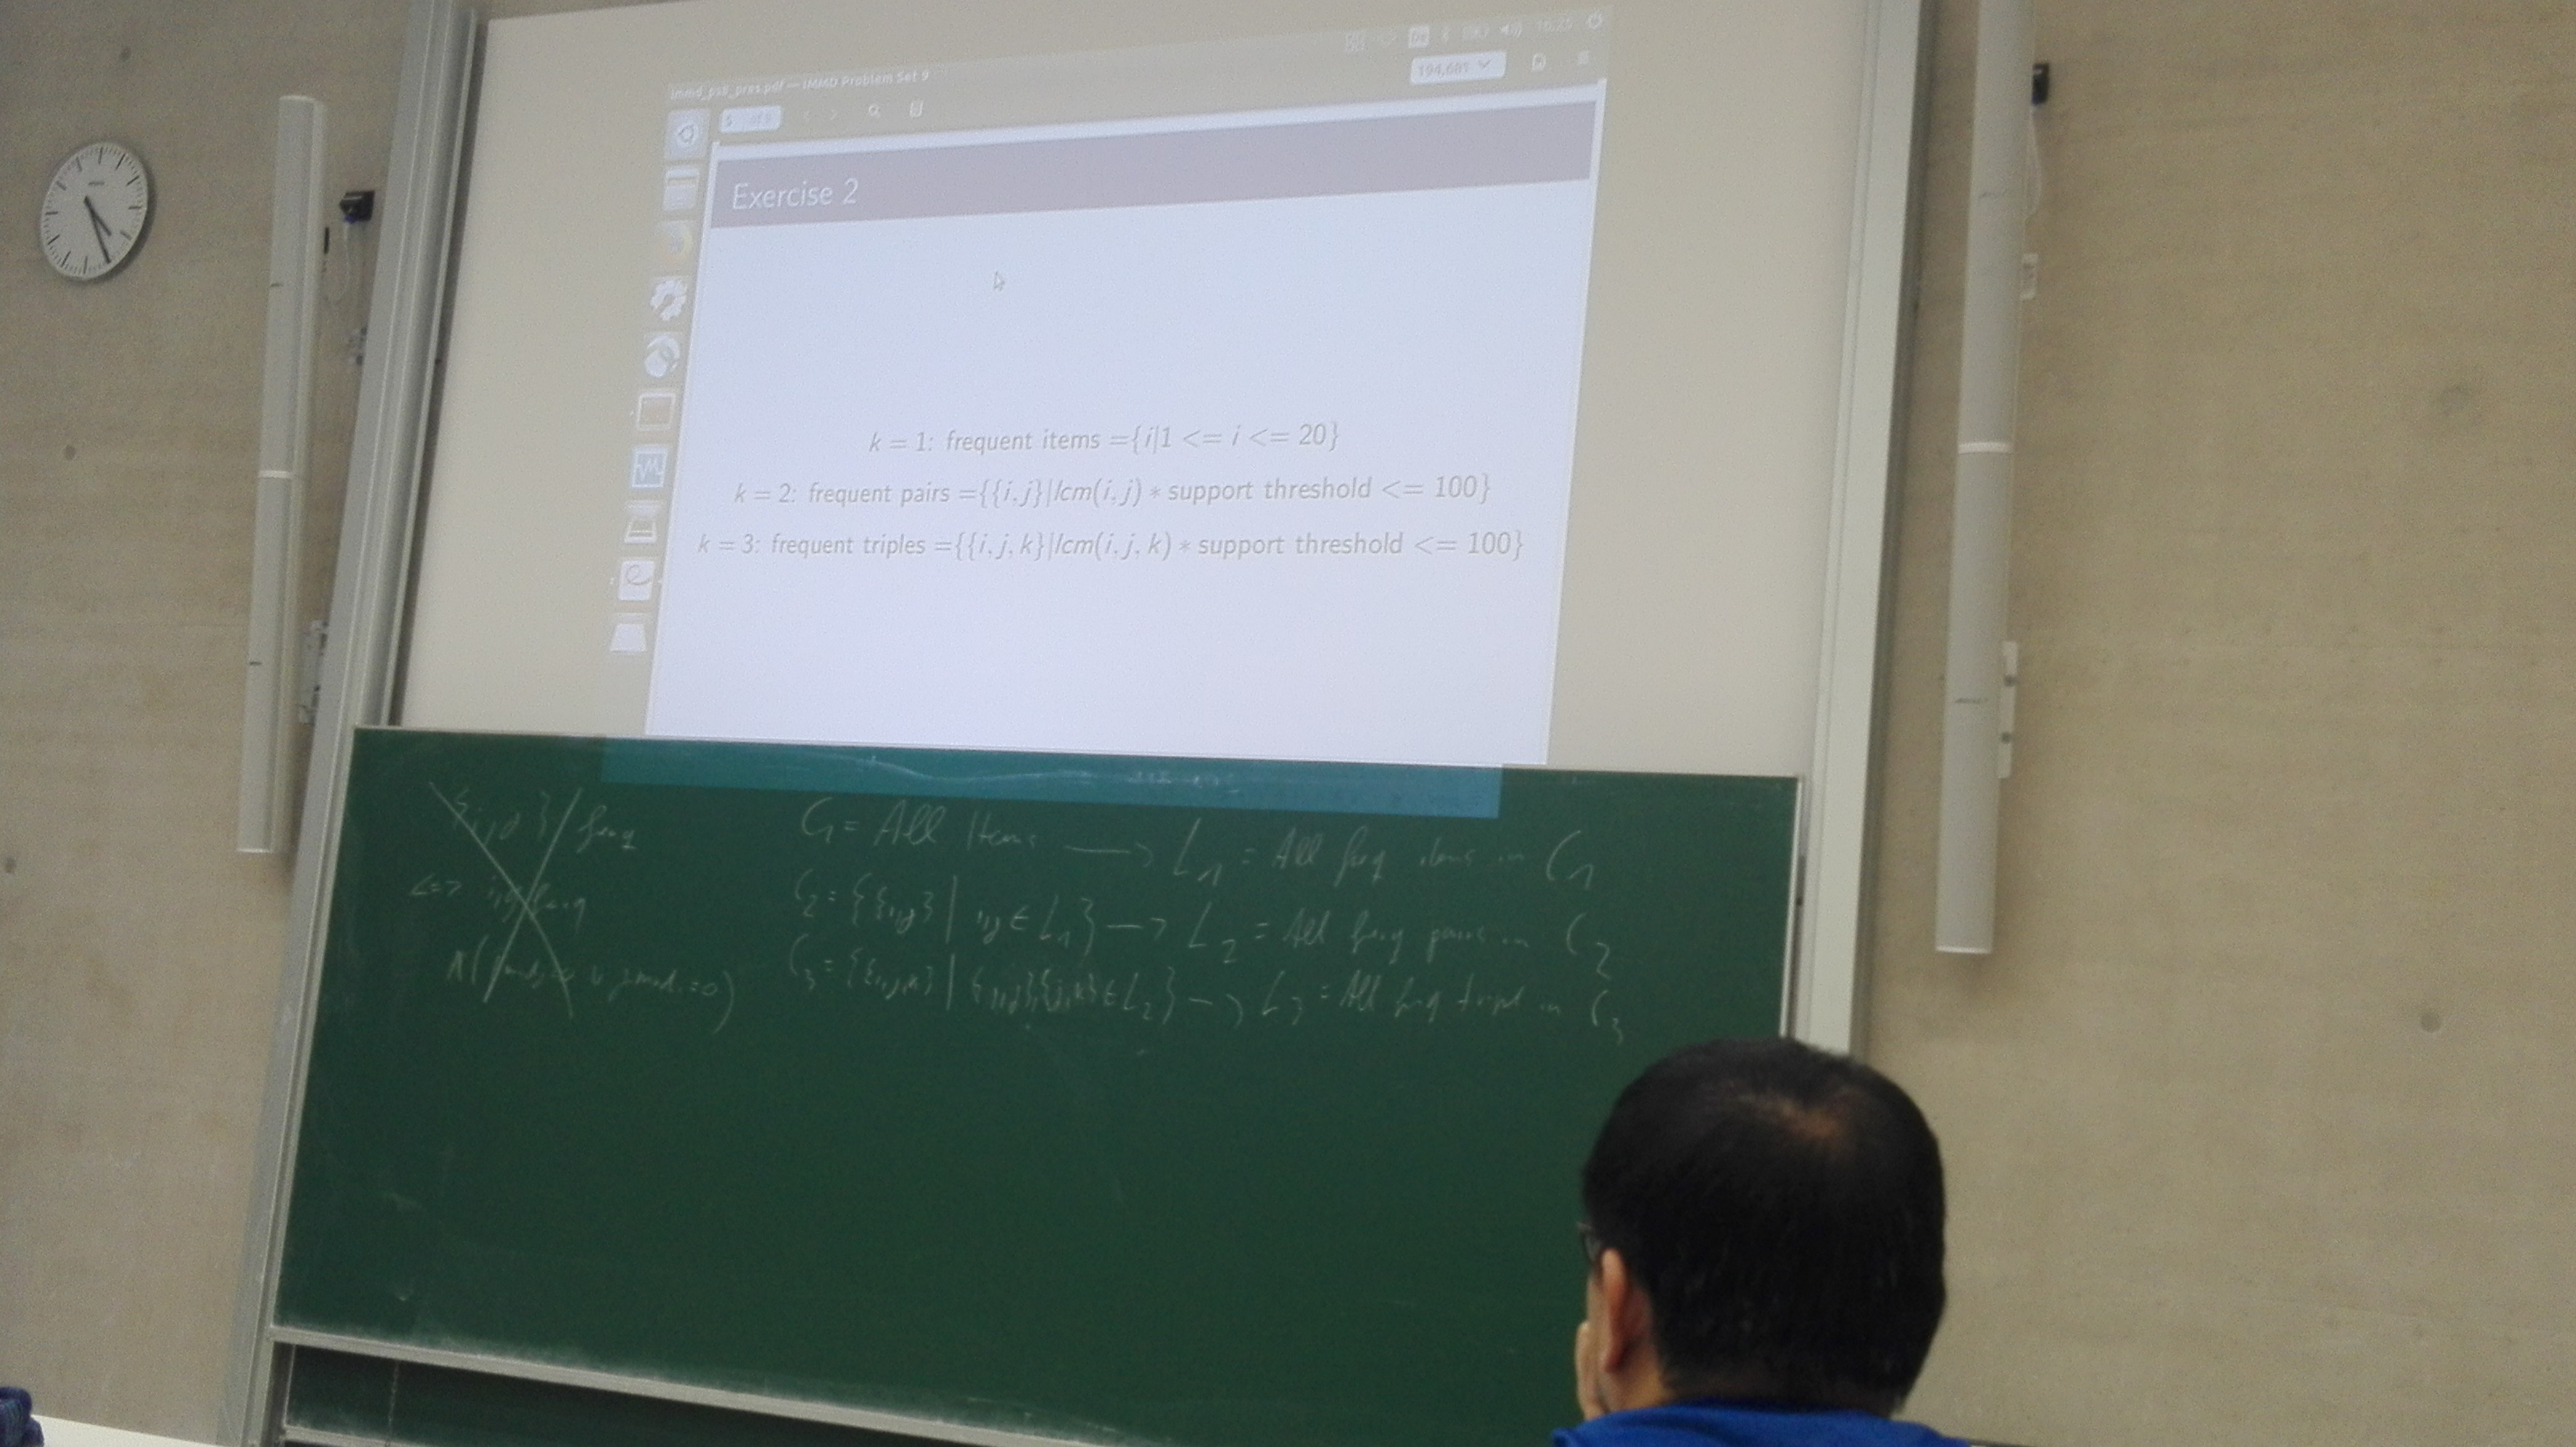 immd_ps8_pres.pdf — IMMD Problem Set 9
De 16:25
5 of 9 194,68%
Exercise 2
k = 1: frequent items ={i|1 <= i <= 20}
k = 2: frequent pairs ={{i, j}|lcm(i, j) ∗ support threshold <= 100}
k = 3: frequent triples ={{i, j, k}|lcm(i, j, k) ∗ support threshold <= 100}
{i,j} freq
<=> i,j freq
∧( j mod i =0)
C1 = All Items —> L1 = All freq items in C1
C2 = {{i,j} | i,j ∈ L1} —> L2 = All freq pairs in C2
C3 = {{i,j,k} | {i,j},{j,k} ∈ L2} —> L3 = All freq tripl in C3